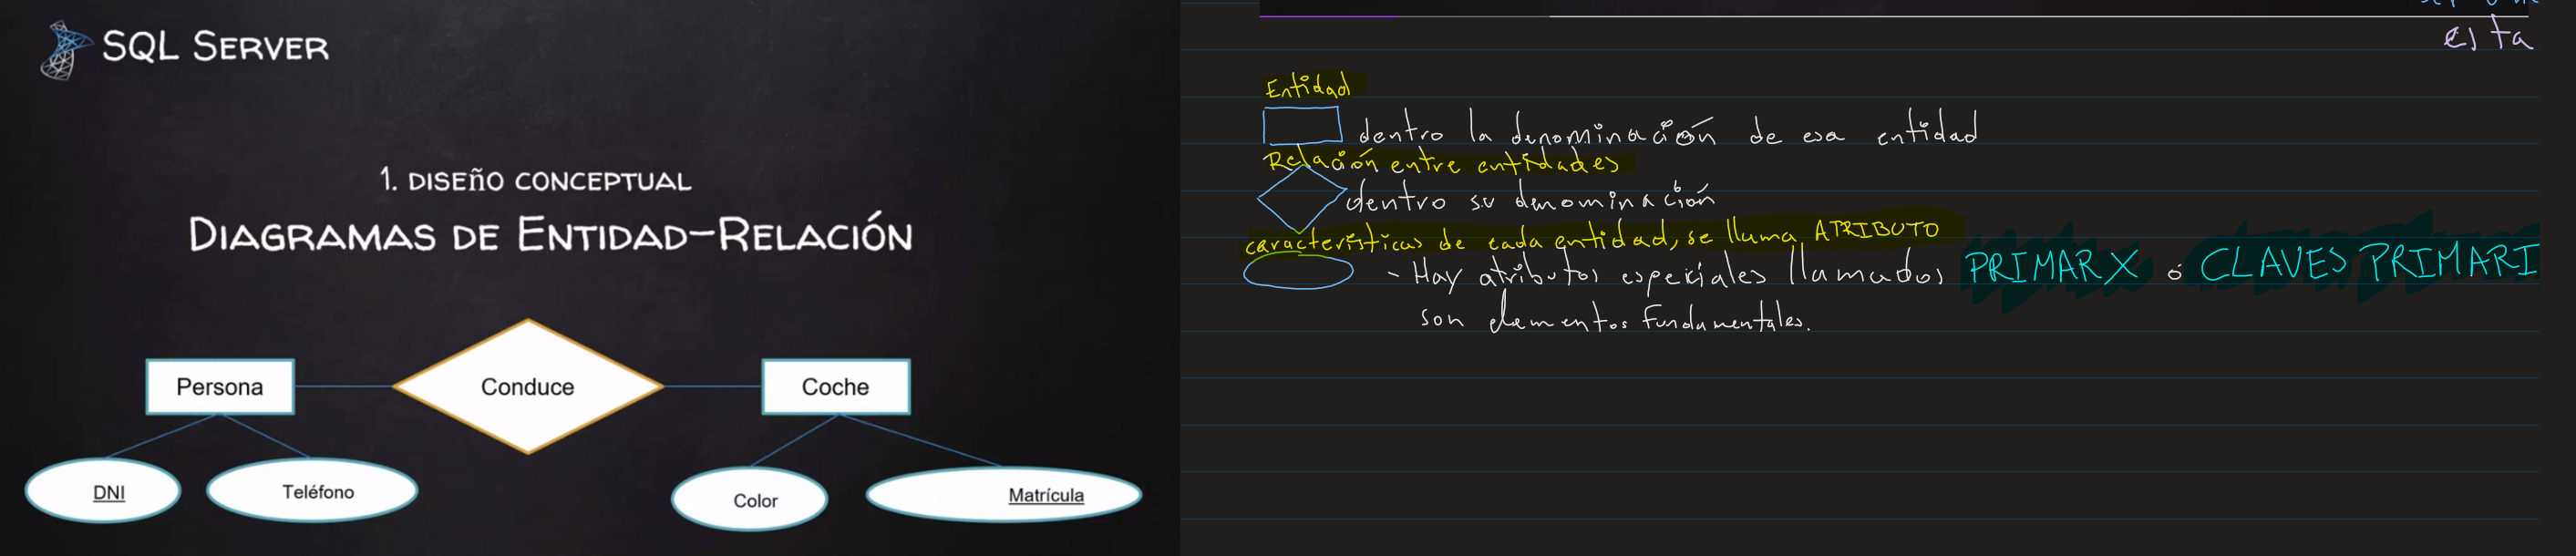 SQL SERVER
1. DISEÑO CONCEPTUAL
DIAGRAMAS DE ENTIDAD-RELACIÓN
Persona
Conduce
Coche
DNI
Teléfono
Color
Matrícula
esta
Entidad
dentro la denominación de esa entidad
Relación entre entidades
dentro su denominación
características de cada entidad, se llama ATRIBUTO
- Hay atributos especiales llamados PRIMARY ó CLAVES PRIMARI
son elementos fundamentales.